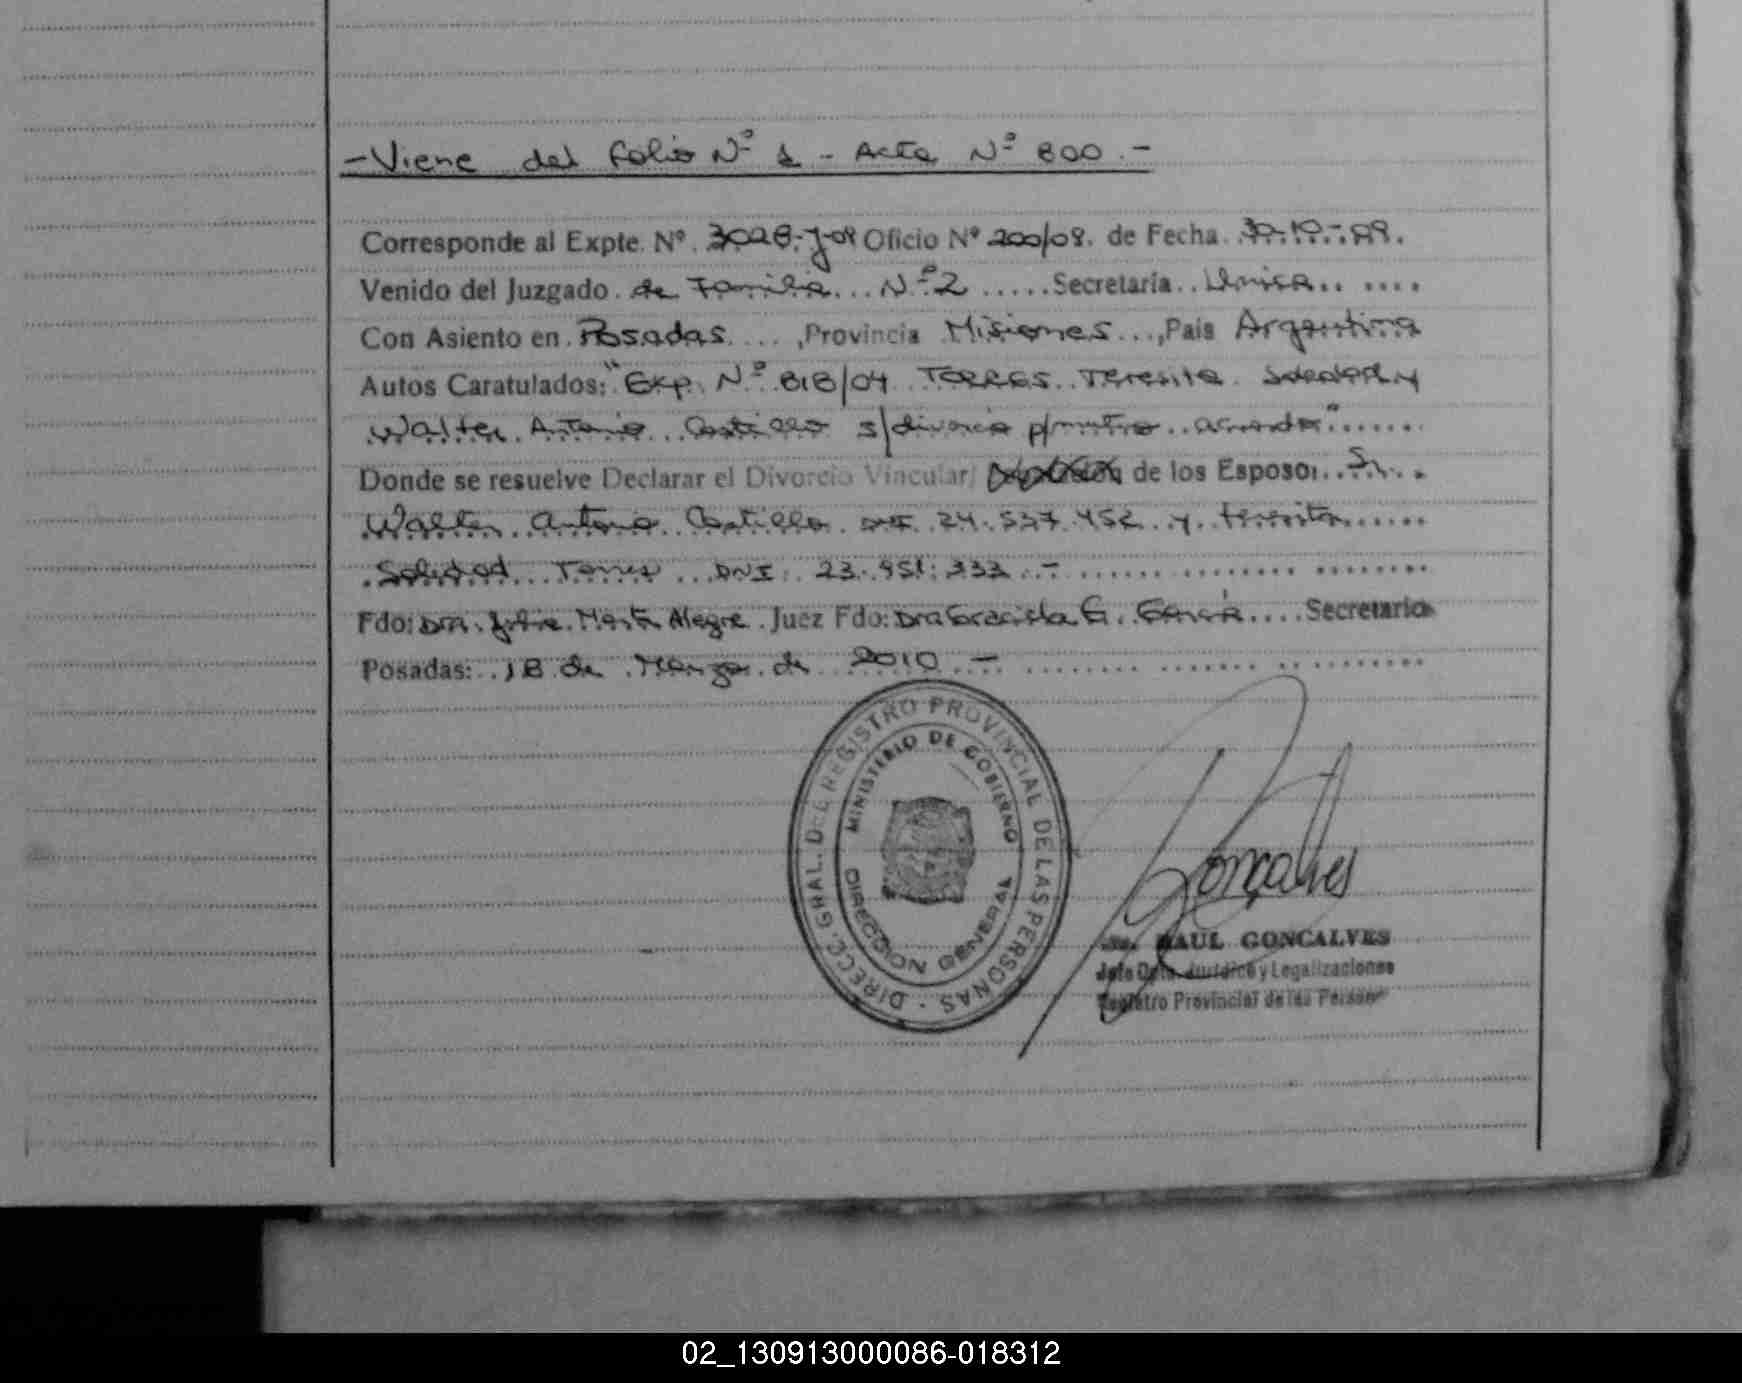 -Viene del folio Nº 1 - Acta Nº 800.-
Corresponde al Expte. Nº 3028-J-09 Oficio Nº 200/09. de Fecha 30-10-09.
Venido del Juzgado de Familia Nº 2 Secretaría Unica
Con Asiento en Posadas, Provincia Misiones, País Argentina
Autos Caratulados: "Exp. Nº 818/04 TORRES Teresita Soledad y
Walter Antonio Castillo s/divorcio p/mutuo acuerdo"
Donde se resuelve Declarar el Divorcio Vincular/ de los Esposo: Sr.
Walter Antonio Castillo DNI 24.537.452 y Teresita
Soledad Torres DNI 23.951.333.-
Fdo: Dra. Marta Alegre Juez Fdo: Dra Graciela G. García Secretario
Posadas: 18 de Marzo de 2010.-
DIRECC. GRAL. DEL REGISTRO PROVINCIAL DE LAS PERSONAS
MINISTERIO DE GOBIERNO
DIRECCION GENERAL
Gonçalves
RAUL GONCALVES
Jefe Dpto. Jurídico y Legalizaciones
Registro Provincial de las Personas
02_130913000086-018312